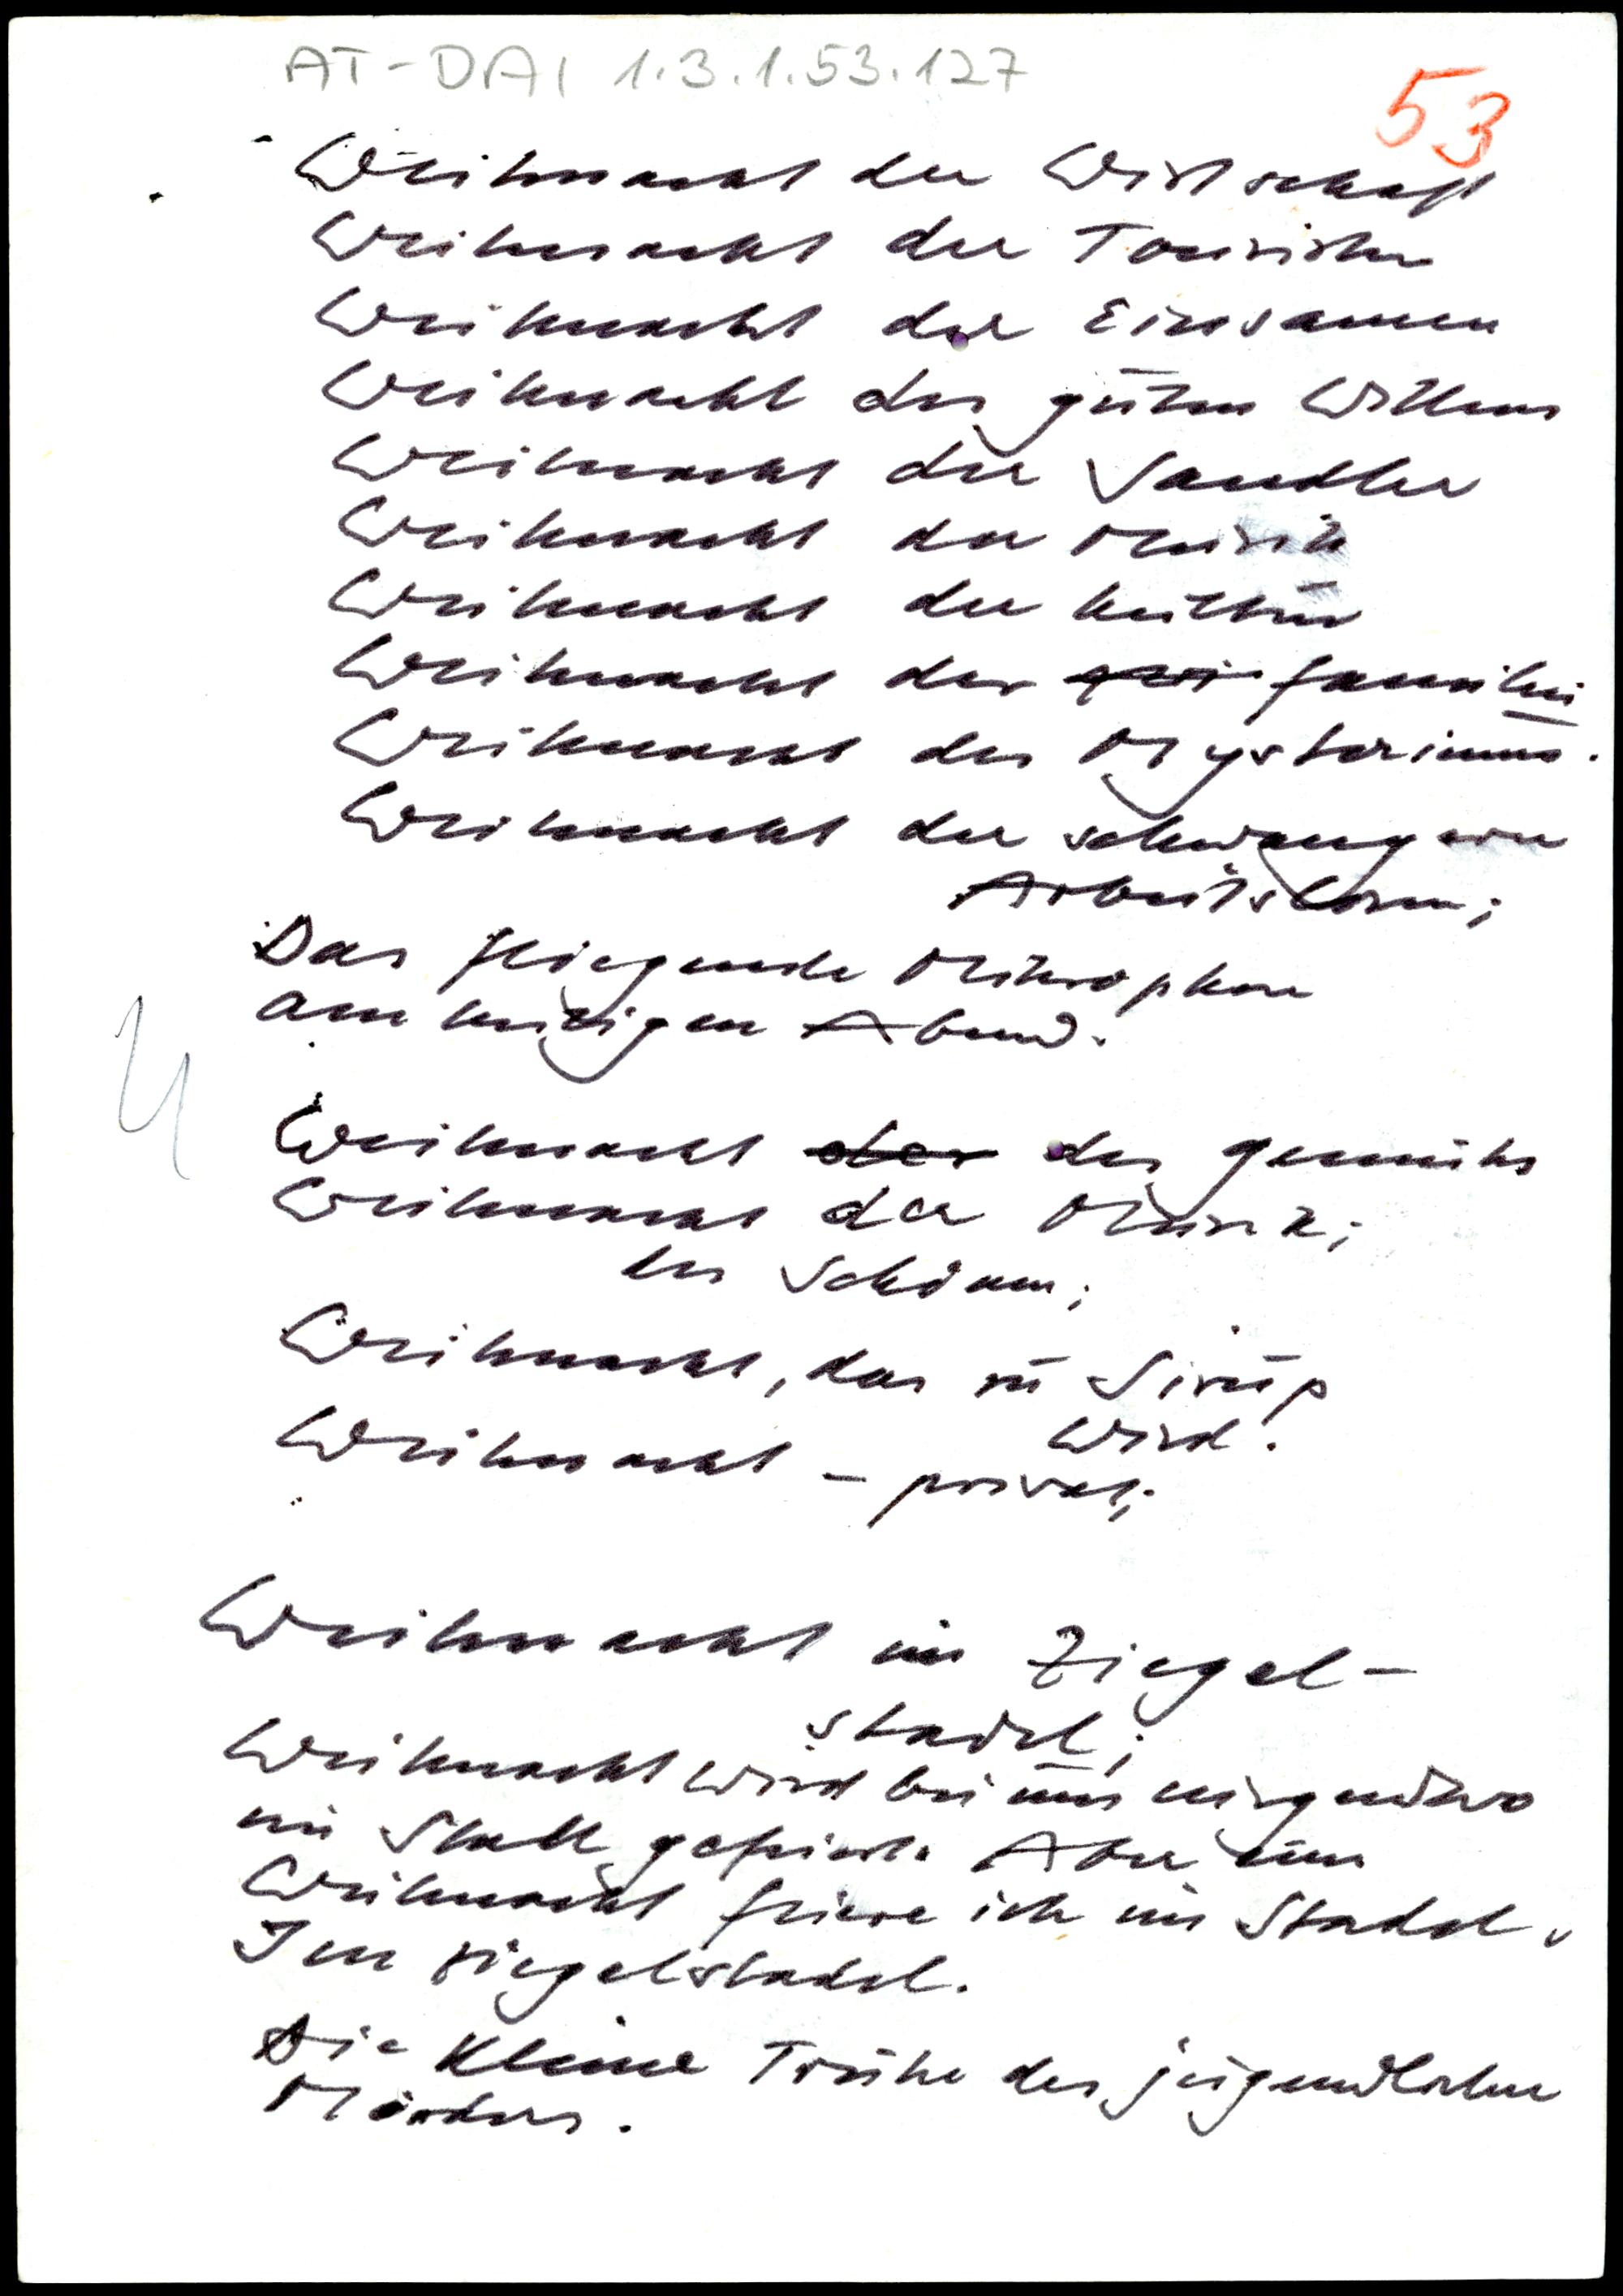 AT-DAI 1.3.1.53.127
53
Weihnacht der Wirtschaft
Weihnacht der Touristen
Weihnacht der Einsamen
Weihnacht des guten Willens
Weihnacht der Sandler
Weihnacht der Musik
Weihnacht der Kultur
Weihnacht der Familie
Weihnacht des Mysteriums.
Weihnacht der schwangeren
Arbeitslosen;
Das fliegende Mikrophon
am heiligen Abend.
Weihnacht der des Gemüts
Weihnacht der Musik;
des Schönen;
Weihnacht, das zu Sirup
wird.
Weihnacht – privat;
Weihnacht im Ziegel-
stadel;
Weihnacht wird bei uns nirgendwo
im Stall gefeiert. Aber
Weihnacht feiere ich im Stadel,
Im Ziegelstadel.
Die kleine Truhe des jugendlichen
Mörders.